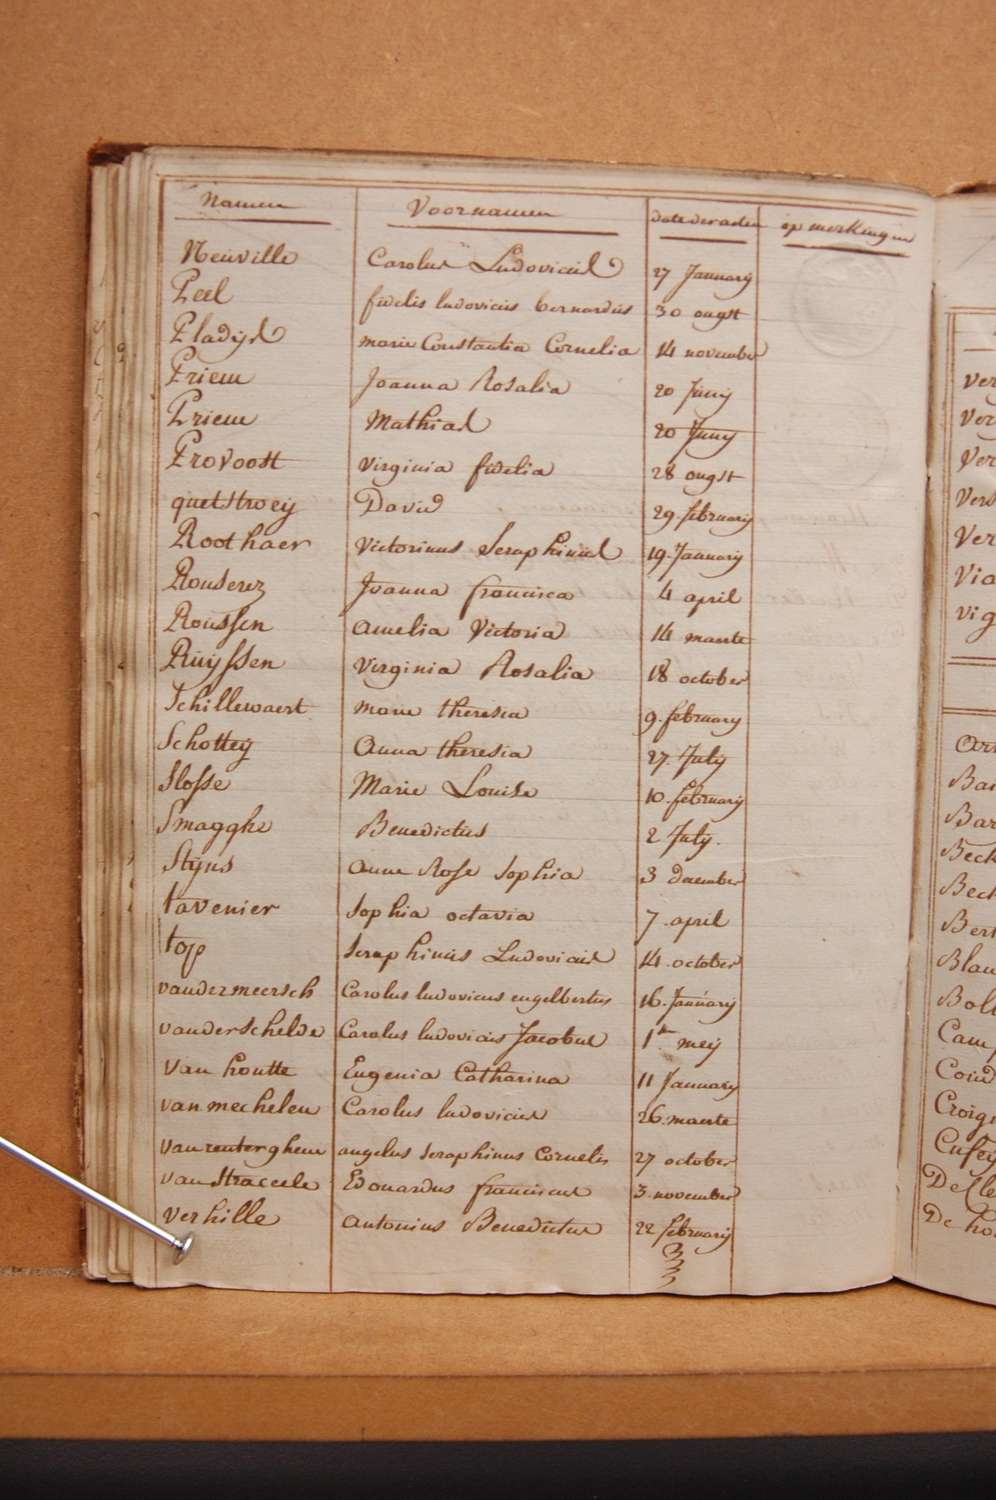 Namen Voornamen date der acten op merkingen
Neuville Carolus Ludovicus 27 January
Peel fidelis ludovicus bernardus 30 ougst
Pladys marie Constantia Cornelia 14 november
Priem Joanna Rosalia 20 Juny
Priem Mathias 20 Juny
Provoost virginia fidelia 28 ougst
quetstroey David 29 february
Roothaer Victorinus Seraphinus 19 January
Rouserez Joanna francisca 4 april
Roussen amelia Victoria 14 maerte
Ruyssen Virginia Rosalia 18 october
Schillewaert marie theresia 9 february
Schottey anna theresia 27 July
Slosse Marie Louise 10 february
Smagghe Benedictus 2 July
Styns anne Rose Sophia 3 december
tavenier Sophia octavia 7 april
top Seraphinus Ludovicus 14 october
vandermeersch Carolus ludovicus engelbertus 16 January
vanderschelde Carolus ludovicus Jacobus 1en mey
van houtte Eugenia Catharina 11 January
van mechelen Carolus ludovicus 26 maerte
van renterghem angelus seraphinus Cornelis 27 october
van Straceele Edouardus franciscus 3 november
verhille antonius Benedictus 22 february